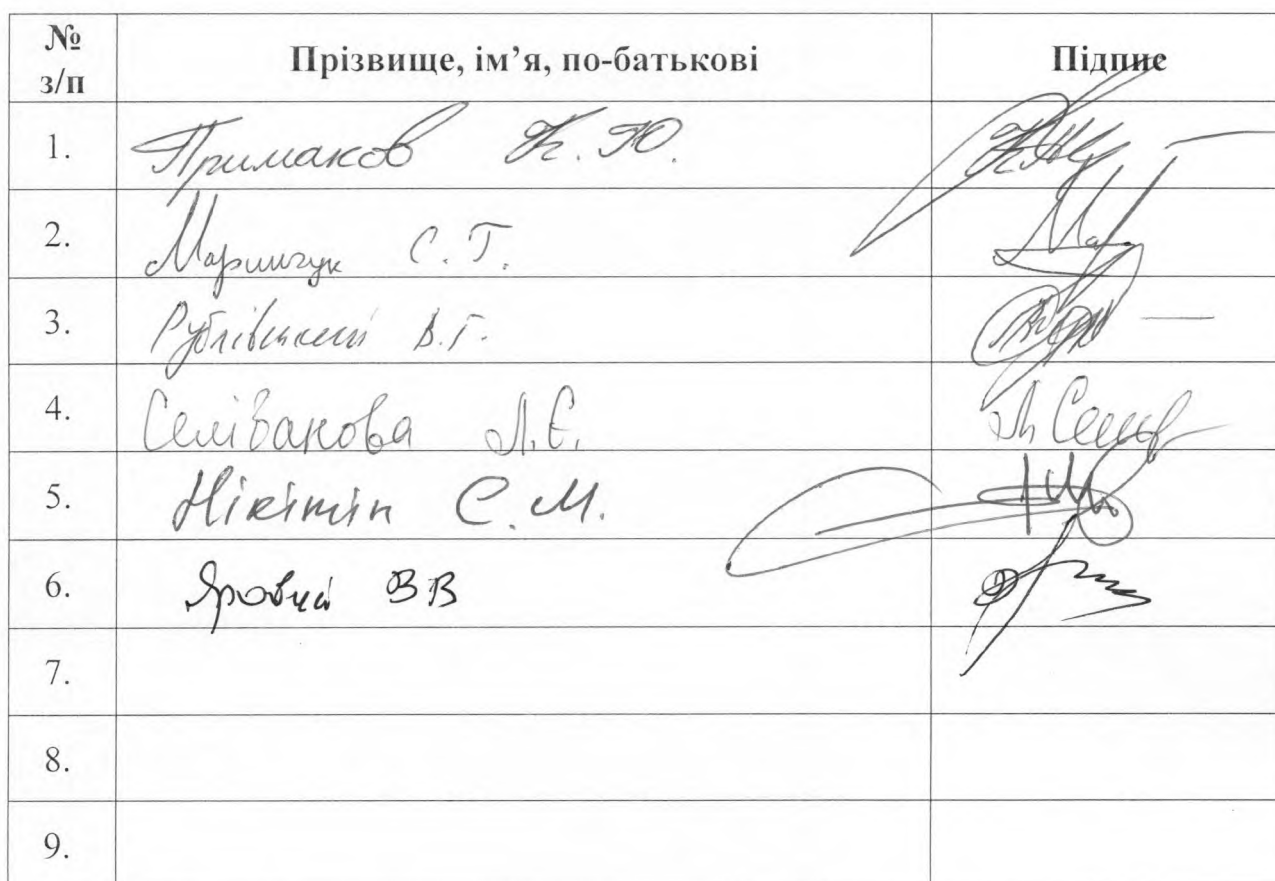 № з/п Прізвище, ім’я, по-батькові Підпис
1. Примаков К. Ю.
2. Маринчук С. Г.
3. Рублівський В.Г.
4. Селіванова Л.Є.
5. Нікітін С. М.
6. Яровий В В
7.
8.
9.